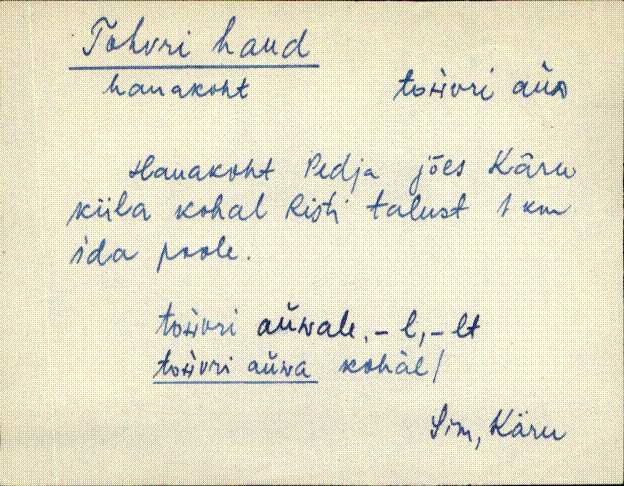 Tohvri haud
hauakoht toʜvri aũᴅ
Hauakoht Pedja jões Käru
küla kohal Risti talust 1 km
ida poole.
toʜvri aũwale, -l, -lt
toʜvri aũwa kohàl/
Sim, Käru